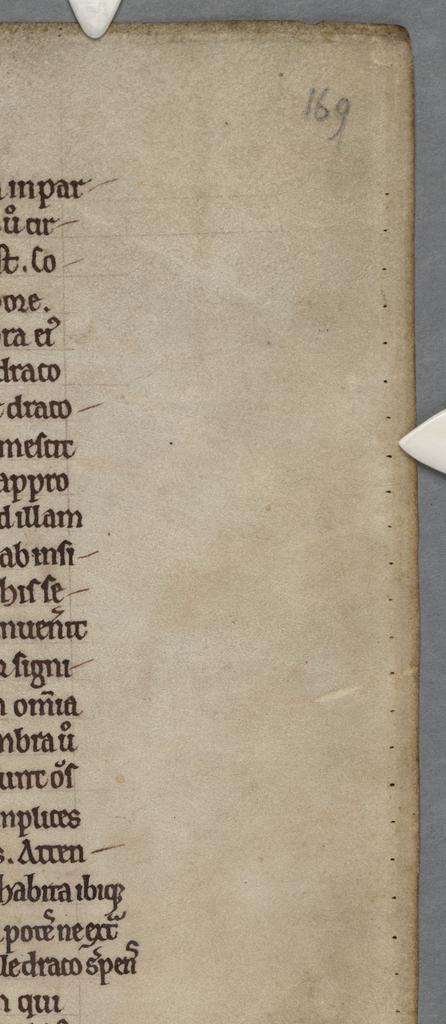 169
inpar
ů cir
st. Co
pore.
bra eiꝰ
draco
draco
mescit
appro
d illam
ab insi
his se
nuenit̄
a signi
n om̄ia
mbra ů
unt o᷒s
mplices
s. Atten
habita ibiqꝫ
potē ne ext̄
le draco s̄pen᷒s
n qui